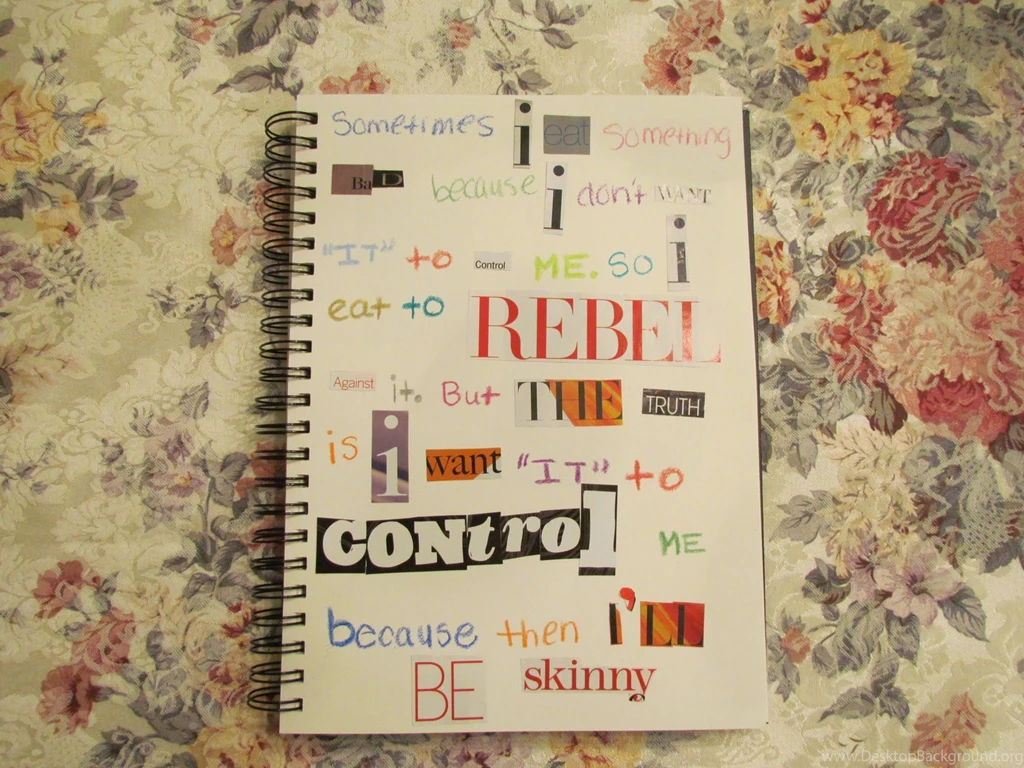 Sometimes i eat something
BaD because i don't WANT
"IT" to Control ME. SO i
eat to REBEL
Against it. But THE TRUTH
is i want "IT" to
CONtrol ME
because then I'LL
BE skinny
www.DesktopBackground.org